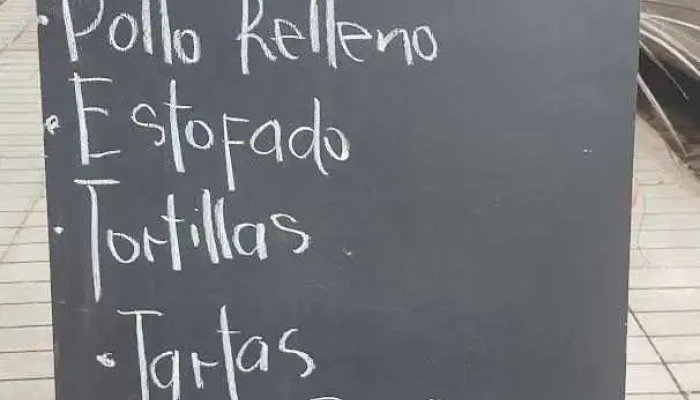 · Pollo Relleno
· Estofado
· Tortillas
· Tartas